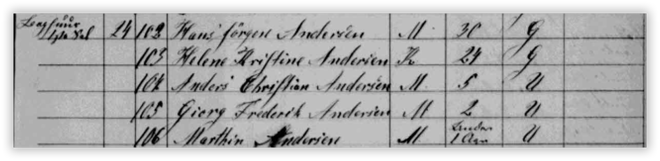 24 102 Hans Jörgen Andersen M. 30 G
103 Helene Kristine Andersen K 24 G
104 Anders Christian Andersen M. 5 U
105 Georg Frederik Andersen M 2 U
106 Marthin Andersen M under 1 Aar U